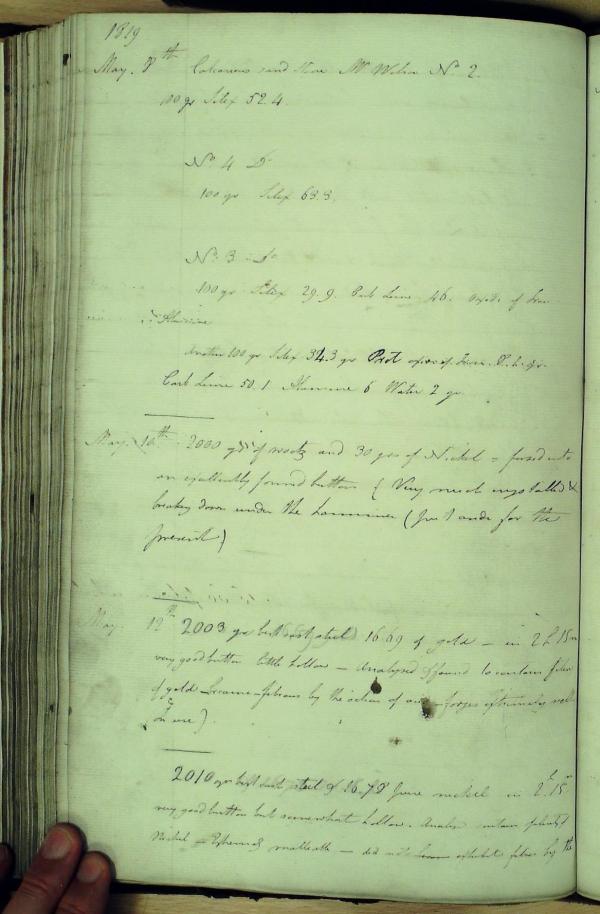 1819
May. 8th Calcareous sand stone Mr Wilson No 2.
100 gr Silex 52.4.
No 4 Do
100 gr Silex 63.3.
No 3 Do
100 gr Silex 29.9. Carb Lime 46. Oxide of Iron
Alumine
Another 100 gr Silex 34.3 gr Prot oxide of Iron
Carb Lime 50.1 Alumine 6 Water 2 gr
May. 10th 2000 grs of wootz and 30 grs of Nickel = fused into
an excellently formed button (Very much crystallised &
breaking down under the hammer (put aside for the
present)
May. 12th 2003 grs best cast steel 16.69 of gold — in 2h 15m
very good button little hollow — Analysed & found to contain
of gold — became fibrous by the action of — forges extremely well
(in use).
2010 grs best cast steel & pure nickel in 2h 15m
very good button but somewhat hollow.
Nickel = Extremely malleable — did not exhibit fibres by the